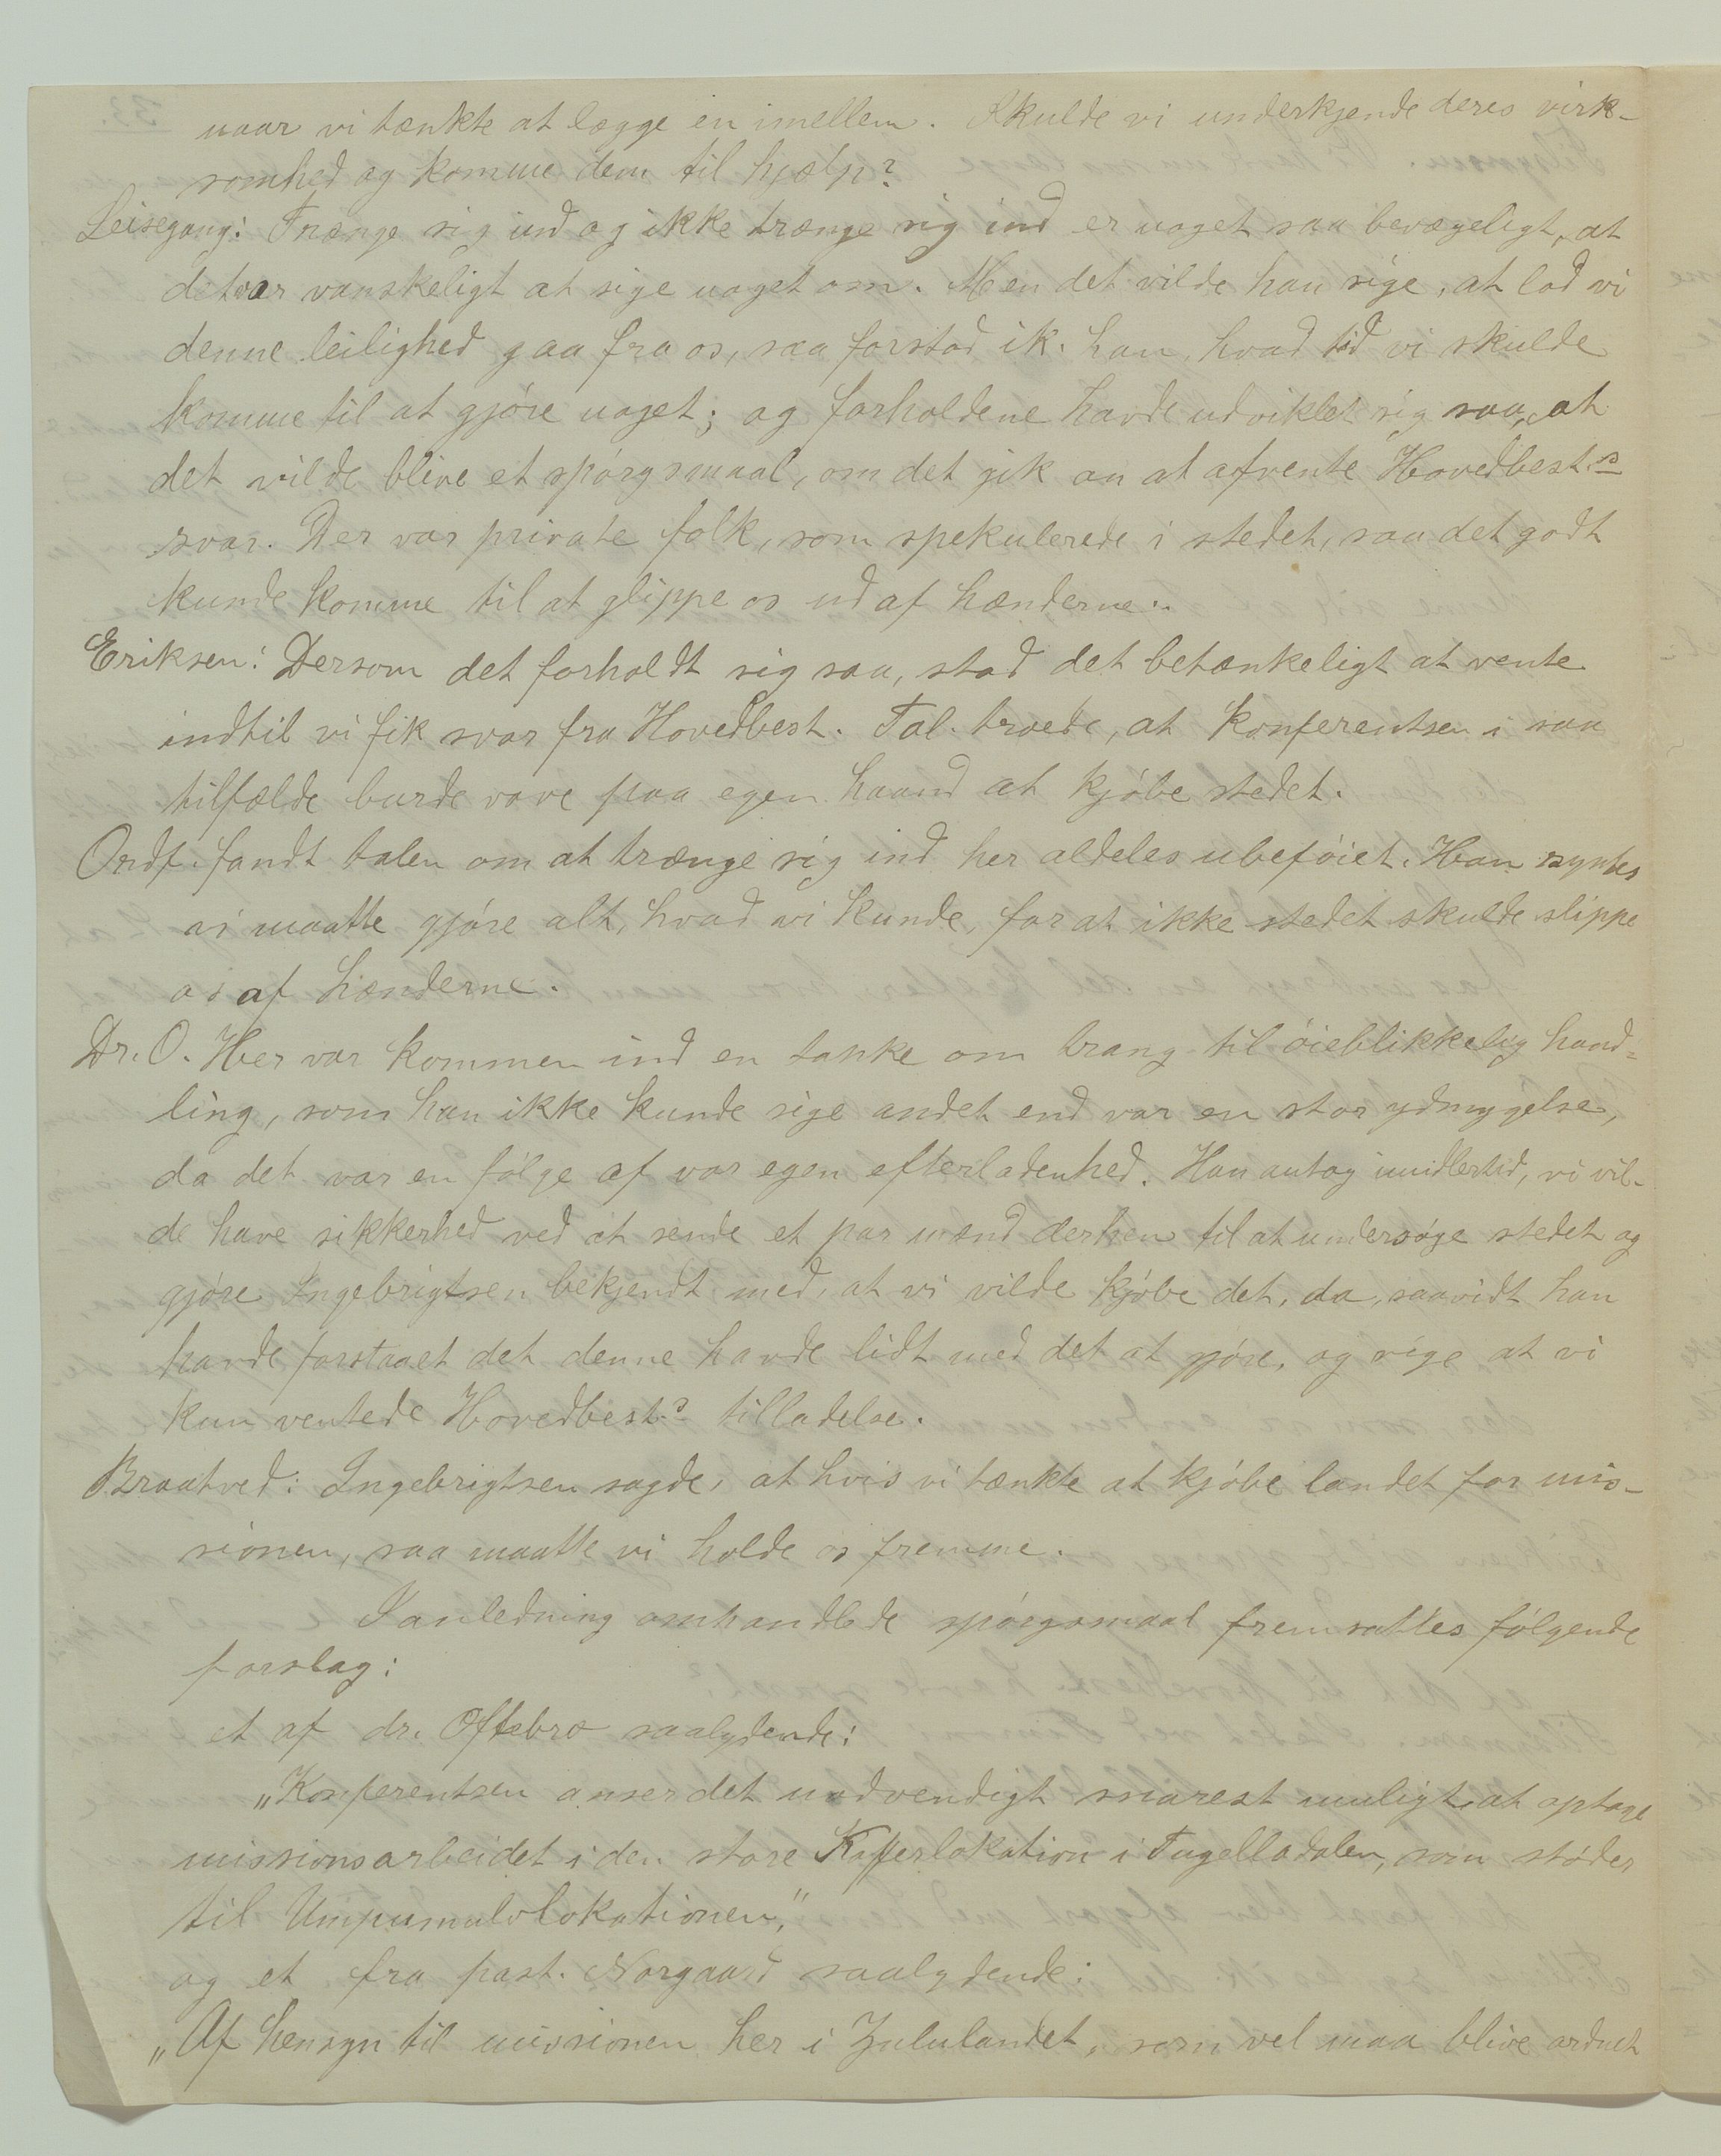 naar vi tænkte at lægge en imellem. Skulde vi underkjende deres virk-
somhed og komme dem til hjælp?
Leisegang: Trænge sig ind og ikke trænge sig ind er noget saa bevægeligt, at
det var vanskeligt at sige noget om. Men det vilde han sige, at lod vi
denne leilighed gaa fra os, saa forstod ik. han, hvad tid vi skulde
komme til at gjöre noget; og forholdene havde udviklet sig saa, at
det vilde blive et spörgsmaal, om det gik an at afvente Hovedbest.s
svar. Der var private folk, som spekulerede i stedet, saa det godt
kunde komme til at glippe os ud af hænderne.
Eriksen: Dersom det forholdt sig saa, stod det betænkeligt at vente
indtil vi fik svar fra Hovedbest. Tal. troede, at Konferentsen i saa
tilfælde burde vove paa egen haand at kjöbe stedet.
Ordf. fandt talen om at trænge sig ind her aldeles ubeföiet. Han syntes
vi maatte gjöre alt, hvad vi kunde, for at ikke stedet skulde slippe
os af hænderne.
Dr. O. Her var kommen ind en tanke om trang til öieblikkelig hand-
ling, som han ikke kunde sige andet end var en stor ydmygelse,
da det var en fölge af vor egen efterladenhed. Han antog imidlertid, vi vil-
de have sikkerhed ved at sende et par mænd derhen til at undersöge stedet og
gjöre Ingebrigtsen bekjendt med, at vi vilde kjöbe det, da, saavidt han
havde forstaaet det denne havde lidt med det at gjöre, og sige at vi
kun ventede Hovedbest.s tilladelse.
Braatved: Ingebrigtsen sagde, at hvis vi tænkte at kjöbe landet for mis-
sionen, saa maatte vi holde os fremme.
I anledning omhandlede spörgsmaal fremsattes fölgende
forslag:
et af dr. Oftebro saalydende:
„Konferentsen anser det nödvendigt snarest muligt at optage
missionsarbeidet i den store Kafferlokation i Tugelladalen, som stöder
til Umpumulolokationen,"
og et fra past. Norgaard saalydende:
„Af hensyn til missionen her i Zululandet, som vel maa blive ordnet